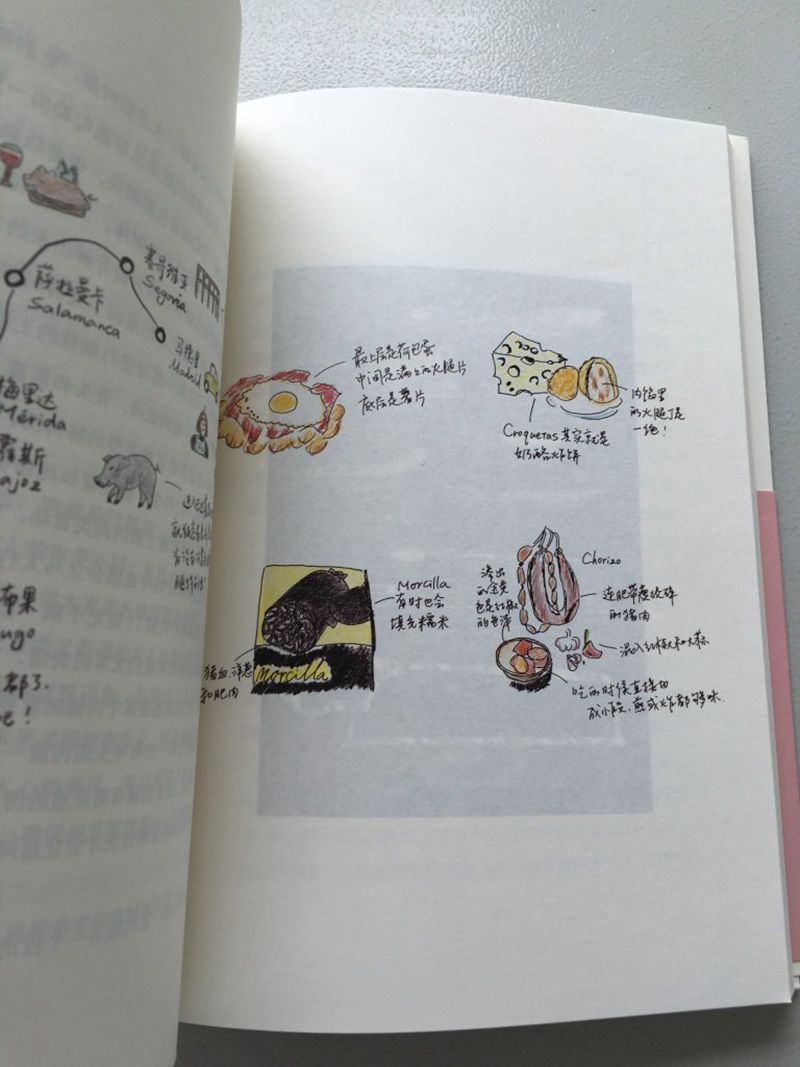 萨拉曼卡
Salamanca
塞哥维亚
Segovia
马德里
Madrid
梅里达
Mérida
罗斯
ajoz
布果
ugo
都了.
吧!
最上层是荷包蛋
中间是满满的火腿片
底层是薯片
内馅里
的火腿丁是
一绝!
Croquetas 其实就是
奶酪炸饼
Morcilla
有时也会
填充糯米
猪血、洋葱
和肥肉
Morcilla
渗出
的金黄
色是红椒
的色泽
Chorizo
连肥带瘦绞碎
的猪肉
混入红椒和大蒜
吃的时候直接切
成小段,煎或炸都够味.